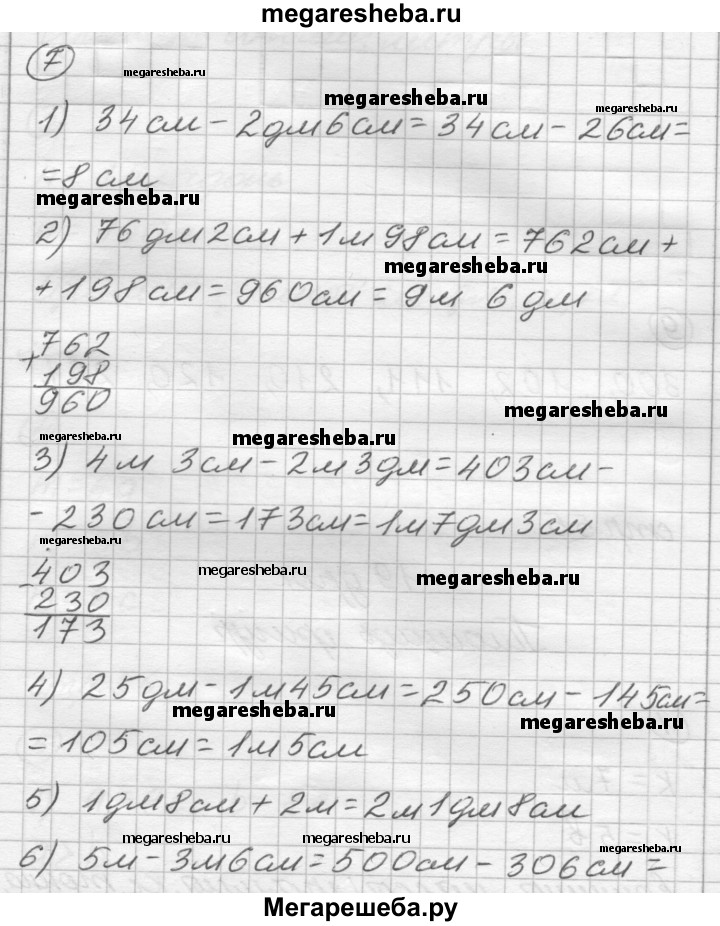 megaresheba.ru
7
megaresheba.ru
megaresheba.ru
megaresheba.ru
1) 34 см - 2дм 6 см = 34 см - 26 см =
= 8 см
megaresheba.ru
2) 76 дм 2 см + 1 м 98 см = 762 см +
megaresheba.ru
+ 198 см = 960 см = 9 м 6 дм
+ 762
198
960
megaresheba.ru
megaresheba.ru
megaresheba.ru
3) 4 м 3 см - 2 м 3 дм = 403 см -
- 230 см = 173 см = 1 м 7 дм 3 см
megaresheba.ru
megaresheba.ru
megaresheba.ru
- 403
230
173
4) 25 дм - 1 м 45 см = 250 см - 145 см =
megaresheba.ru
megaresheba.ru
= 105 см = 1 м 5 см
5) 1 дм 8 см + 2 м = 2 м 1 дм 8 см
megaresheba.ru
megaresheba.ru
megaresheba.ru
6) 5 м - 3 м 6 см = 500 см - 306 см =
Мегарешеба.ру